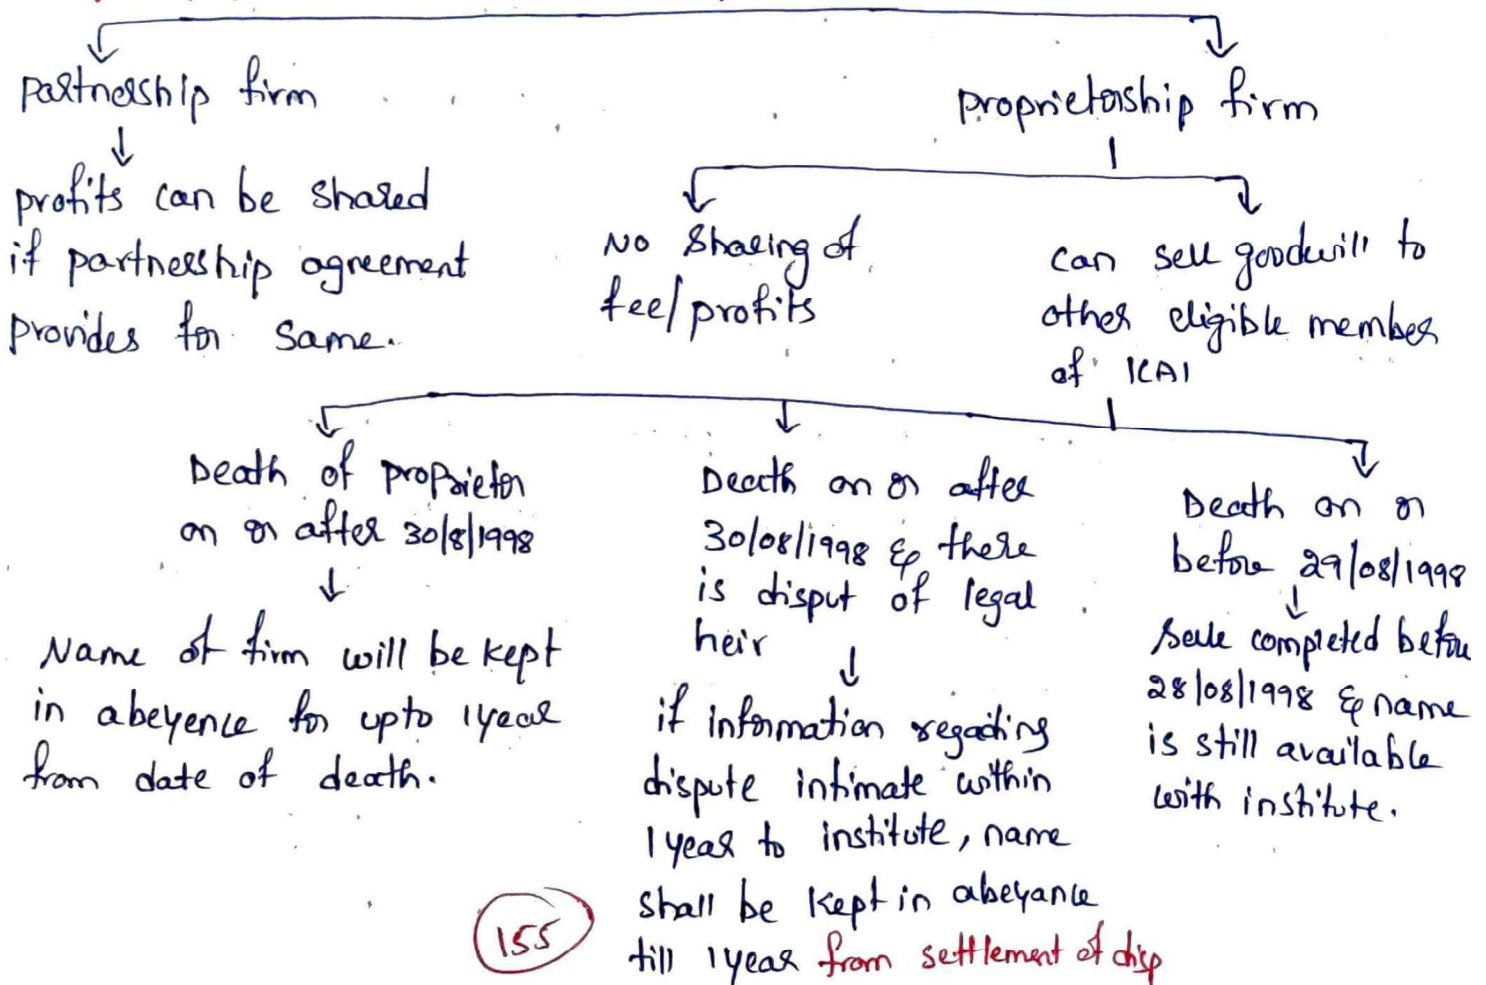 Partnership firm
profits can be shared
if partnership agreement
provides for same.
proprietorship firm
No sharing of
fee/profits
can sell goodwill to
other eligible member
of ICAI
Death of proprietor
on or after 30/8/1998
Name of firm will be kept
in abeyence for upto 1 year
from date of death.
Death on or after
30/08/1998 & there
is disput of legal
heir
if information regarding
dispute intimate within
1 year to institute, name
shall be kept in abeyance
till 1 year from settlement of disp
Death on or
before 29/08/1998
Sale completed before
28/08/1998 & name
is still available
with institute.
155